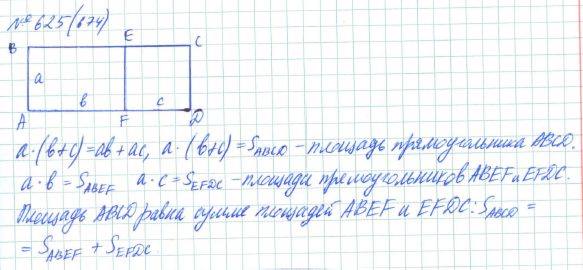 № 625 (674)
B E C
a
b c
A F D
a·(b+c)=ab+ac, a·(b+c)=S_ABCD – площадь прямоугольника ABCD.
a·b = S_ABEF a·c = S_EFDC – площади прямоугольников ABEF и EFDC.
Площадь ABCD равна сумме площадей ABEF и EFDC: S_ABCD =
= S_ABEF + S_EFDC.